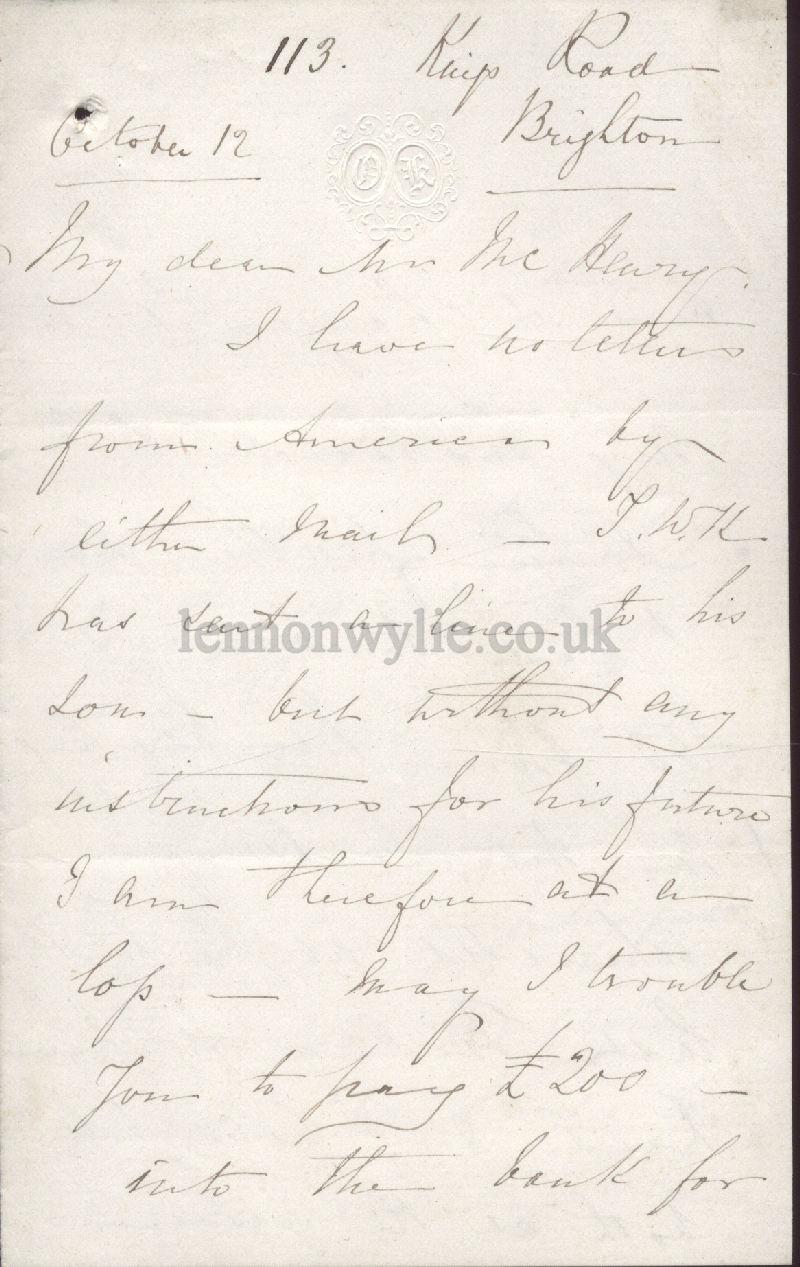 113. Kings Road
October 12 Brighton
O K
My dear Mr McHenry.
I have no letters
from America by
either mail — T.W.K
has sent a line to his
lennonwylie.co.uk
son — but without any
instructions for his future
I am therefore at a
loss — May I trouble
you to pay £200 —
into the bank for